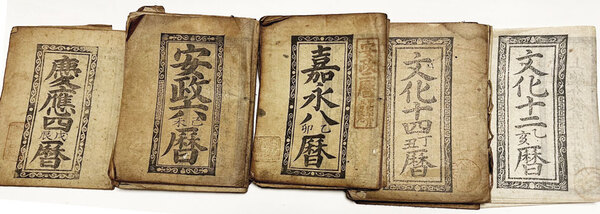 慶應四戊辰暦
安政六己未暦
嘉永八乙卯暦
文化十四丁丑暦
文化十二乙亥暦